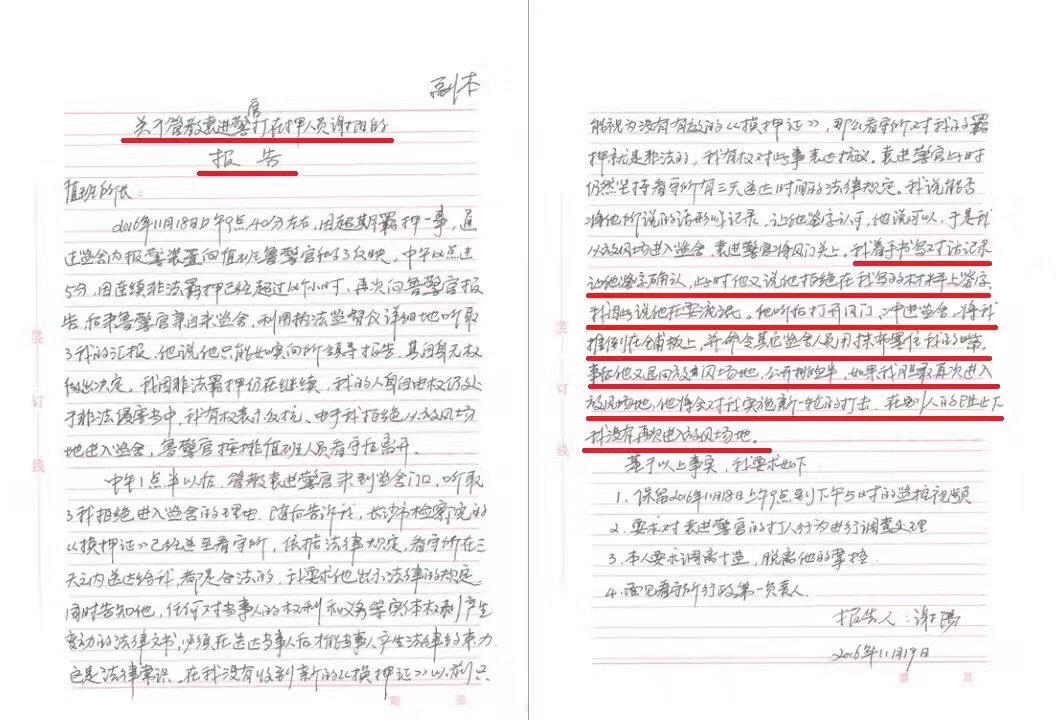 副本
关于管教袁进警官打在押人员谢阳的
报告
值班所长:
2016年11月18日上午9点40分左右,因超期羁押一事,通
过监舍内报警装置向值班鲁警官作了反映。中午12点过
5分,因连续非法羁押已经超过12个小时,再次向鲁警官报
告,后来鲁警官来向来监舍,利用执法监督仪详细地听取
了我的汇报,他说他只能如实向所领导报告,其间自无权
做出决定。我因非法羁押仍在继续,我的人身自由权仍处
于非法侵害当中,我有权表示反抗。由于我拒绝从放风场
地进入监舍,鲁警官安排值班人员看守后离开。
中午1点半以后,管教袁进警官来到监舍门口,听取
了我拒绝进入监舍的理由,随后告诉我,长沙市检察院的
《换押证》已经送至看守所,依据法律规定,看守所在三
天之内送达给我,都是合法的,我要求他出示法律的规定
同时告知他,任何对当事人的权利和义务等实体权利产生
变动的法律文书,必须在送达当事人后才能当事人产生法律约束力
这是法律常识。在我没有收到新的《换押证》以前只
能视为没有有效的《换押证》,那么看守所对我的羁
押就是非法的,我有权对此事表达抗议。袁进警官此时
仍然坚持看守所有三天送达时间的法律规定。我说能否
将他所说的话形成记录,让他签字认可,他说可以,于是我
从放风场进入监舍,袁进警官将风门关上,我着手书写对话记录
让他签字确认,此时他又说他拒绝在我写的材料上签字,
我因此说他在耍流氓。他听后打开风门,冲进监舍,将我
推倒在铺板上,并命令其它监舍人员用抹布塞住我的嘴,
事后他又退回放风场地,公开挑衅,如果我胆敢再次进入
放风场地,他将会对我实施新一轮的打击,在别人的阻止下
我没有再次进入放风场地。
基于以上事实,我要求如下
1.保留2016年11月18日上午9点到下午5时的监控视频
2.要求对袁进警官的打人行为进行调查处理
3.本人要求调离十监,脱离他的掌控
4.面见看守所行政第一负责人.
报告人:谢阳
2016年11月19日
装
订
线
装
订
线